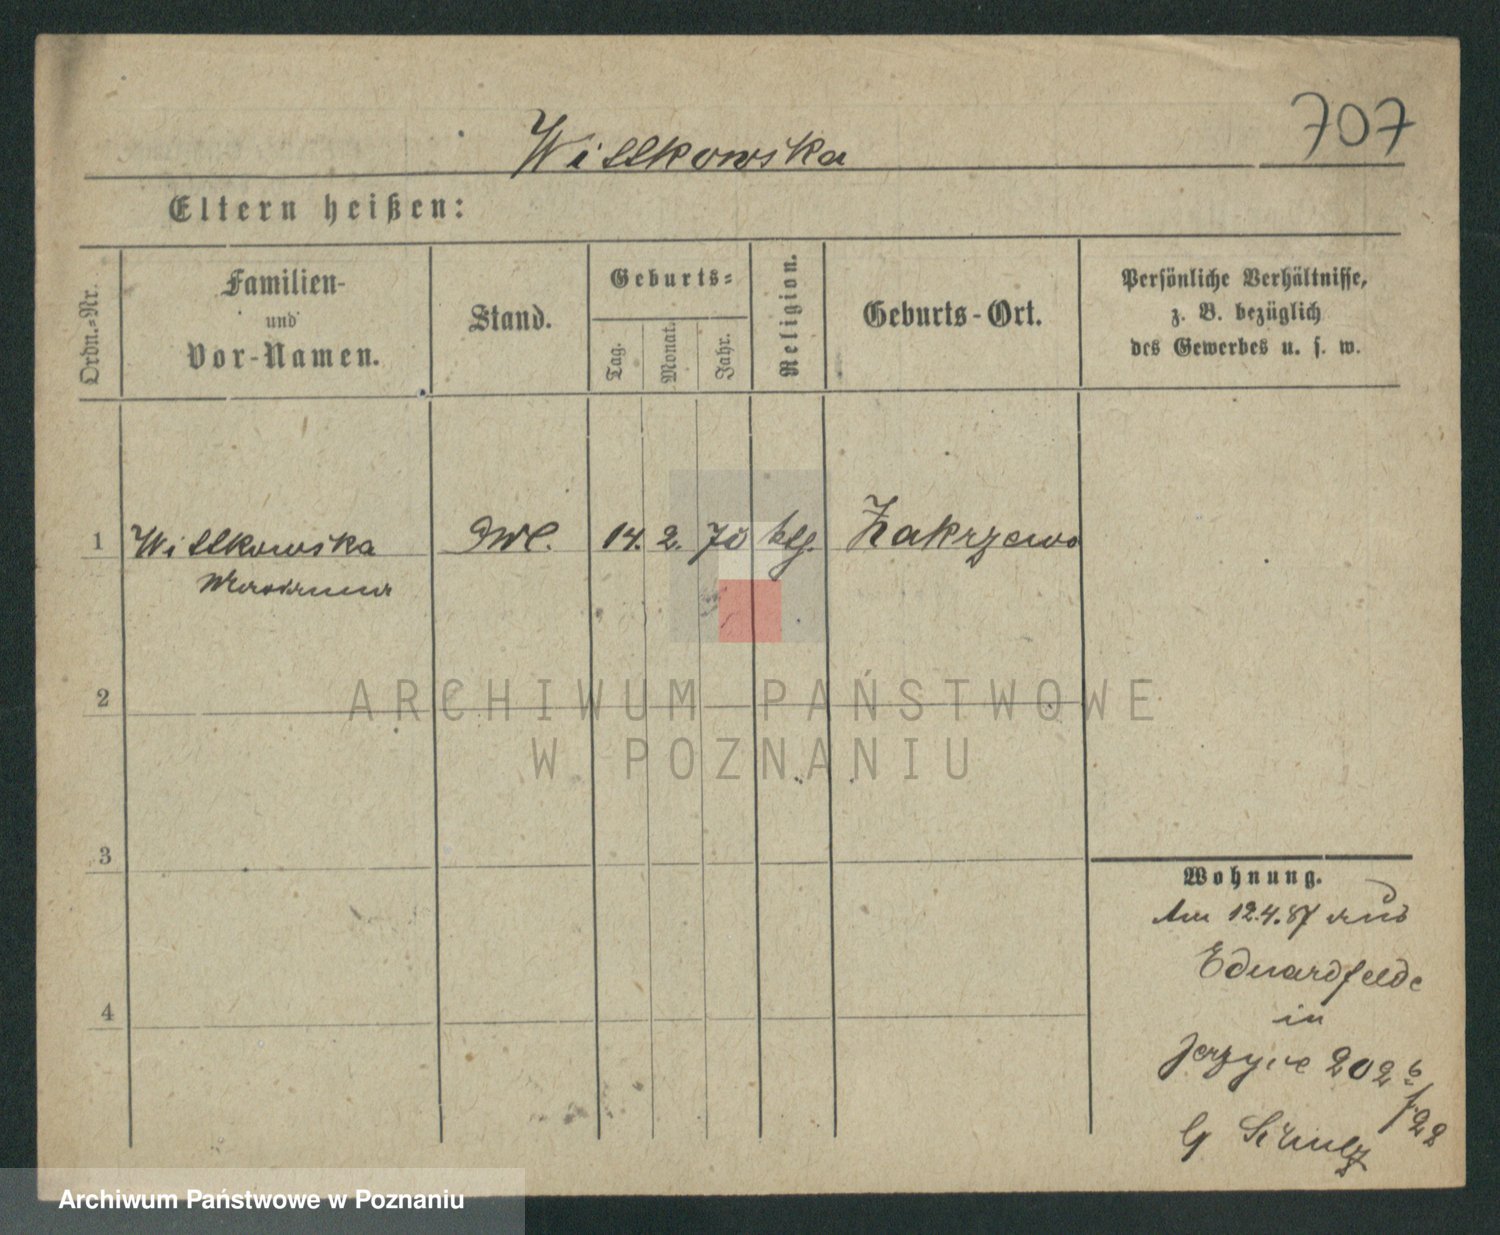 707
Wittkowska
Eltern heißen:
Ordn.-Nr.
Familien-
und
Vor-Namen.
Stand.
Geburts-
Tag.
Monat.
Jahr.
Religion.
Geburts-Ort.
Persönliche Verhältnisse,
z. B. bezüglich
des Gewerbes u. s. w.
1 Wittkowska 14. 2. 70 klg. Zakrzewo
Marianna
2
ARCHIWUM PAŃSTWOWE
W POZNANIU
3
Wohnung.
Am 12.4.87 aus
Eduardfelde
4
in
Jerzyce 202 b
f. 22
Archiwum Państwowe w Poznaniu